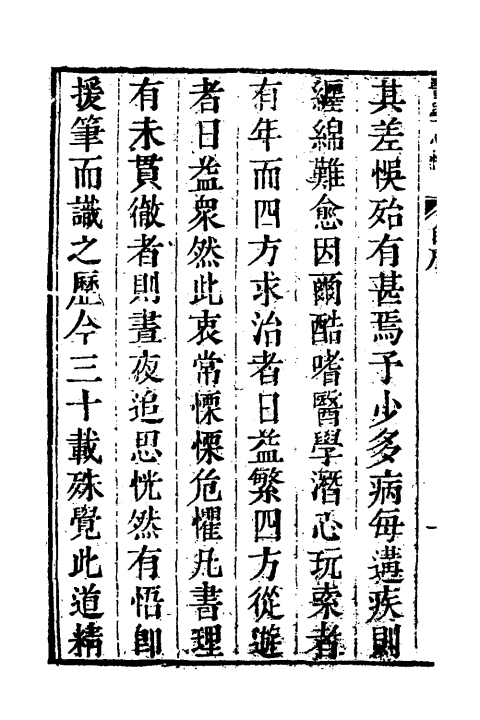 其差悞殆有甚焉予少多病每遘疾則
纒綿難愈因爾酷嗜醫學潛心玩索者
有年而四方求治者日益繁四方從遊
者日益衆然此衷常慄慄危懼凡書理
有未貫徹者則晝夜追思恍然有悟卽
援筆而識之歷今三十載殊覺此道精